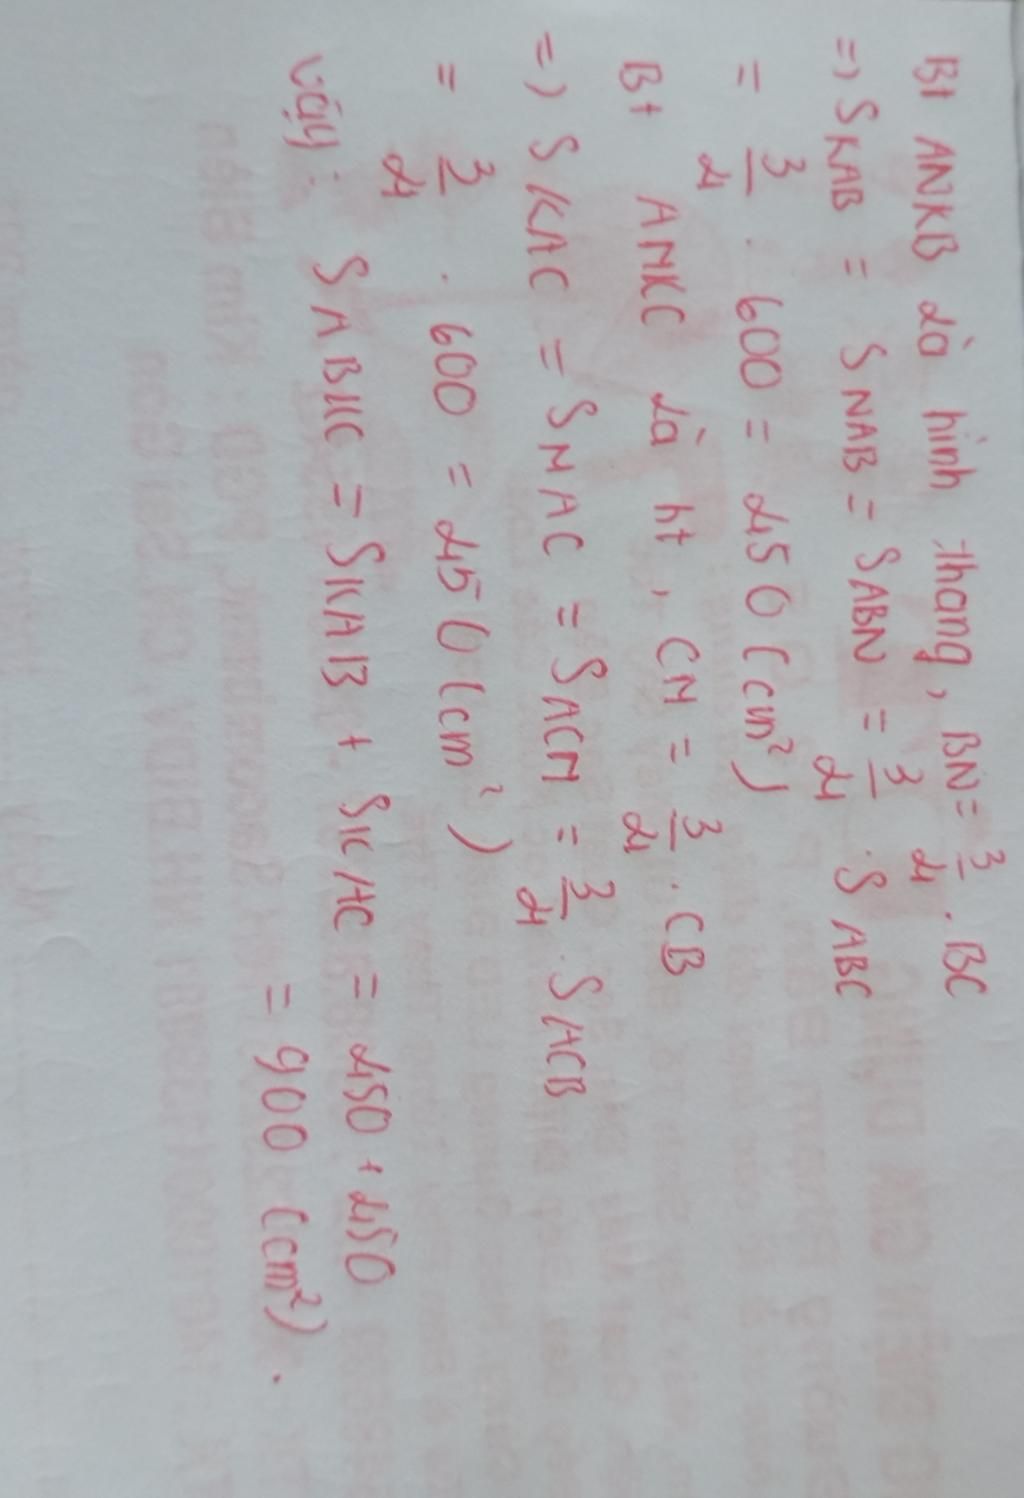 Bt ANKB là hình thang, BN = 3/4 . BC
=> SKAB = SNAB = SABN = 3/4 . SABC
= 3/4 . 600 = 450 (cm²)
Bt AMKC là ht, CM = 3/4 . CB
=> SKAC = SMAC = SACM = 3/4 . SACB
= 3/4 . 600 = 450 (cm²)
Vậy: SABKC = SKAB + SKAC = 450 + 450
= 900 (cm²).